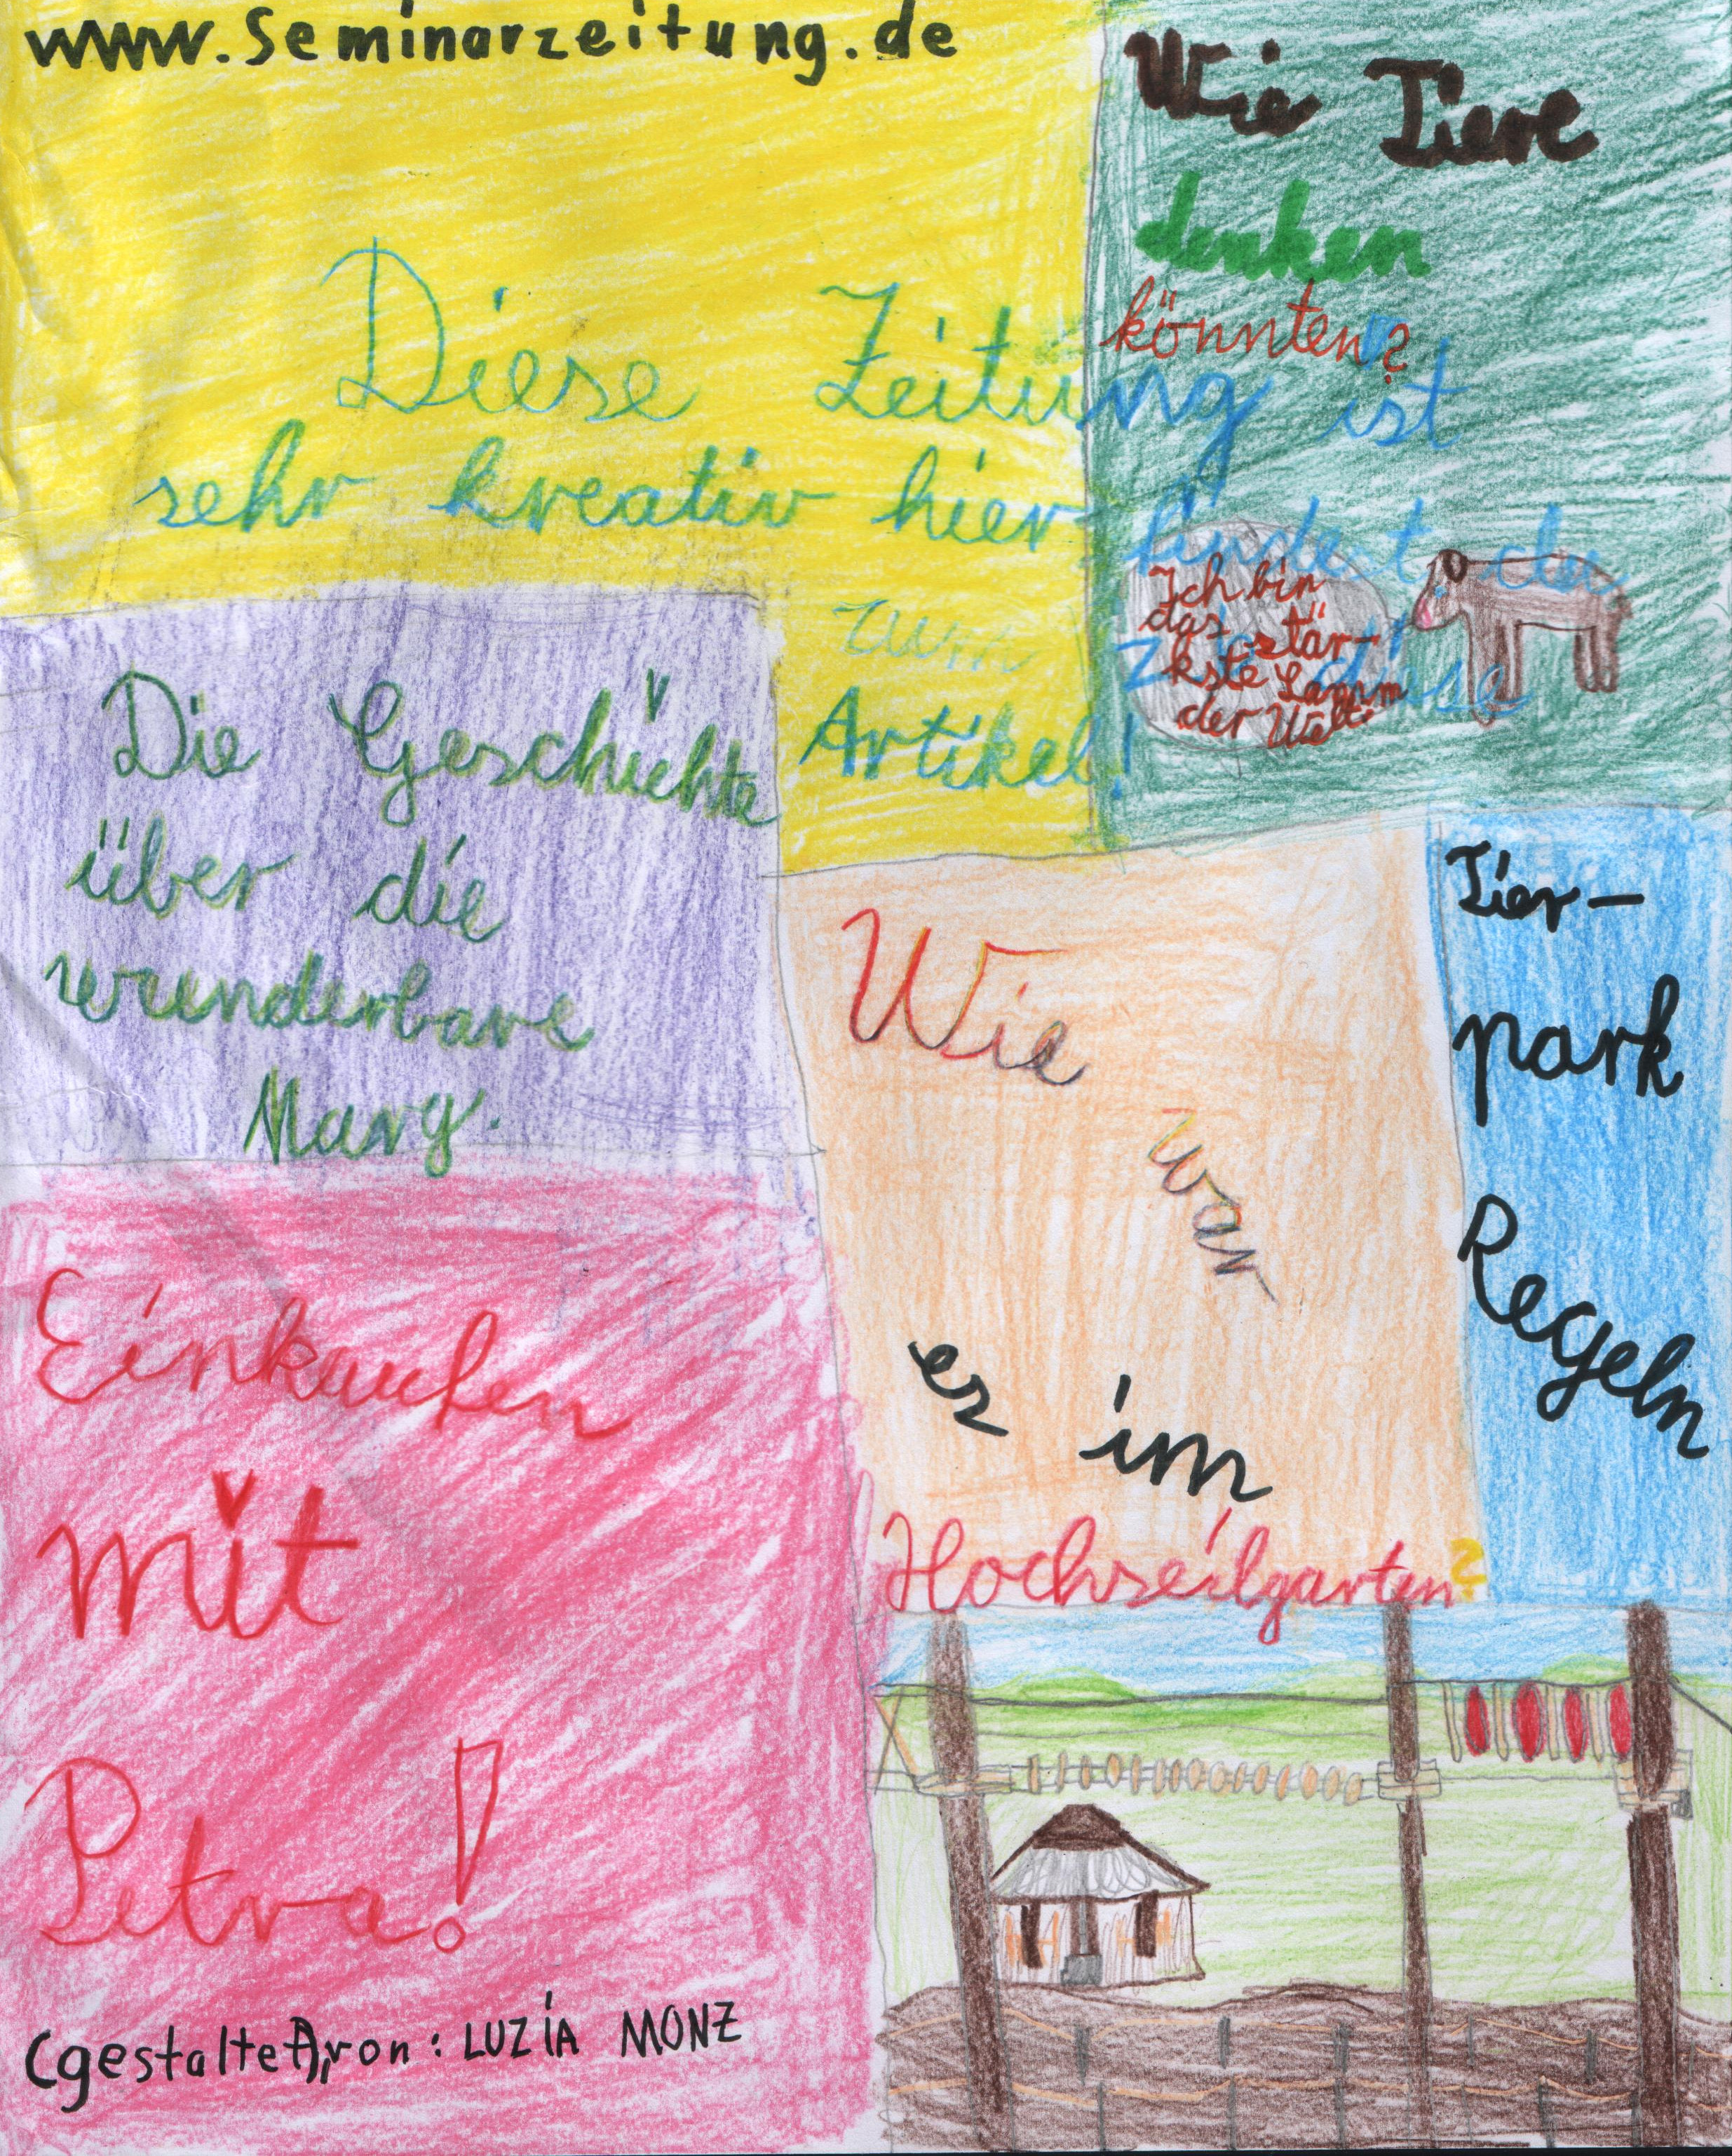 www.seminarzeitung.de
Diese Zeitung ist
sehr kreativ hier findest du
zum diese
Artikel!
Wie Tiere
denken
könnten?
Ich bin
das stär-
kste Lamm
der Welt
Die Geschichte
über die
wunderbare
Marg.
Wie
war
es im
Hochseilgarten?
Tier-
park
Regeln
Einkaufen
mit
Petra!
(gestaltet), von: LUZIA MONZ